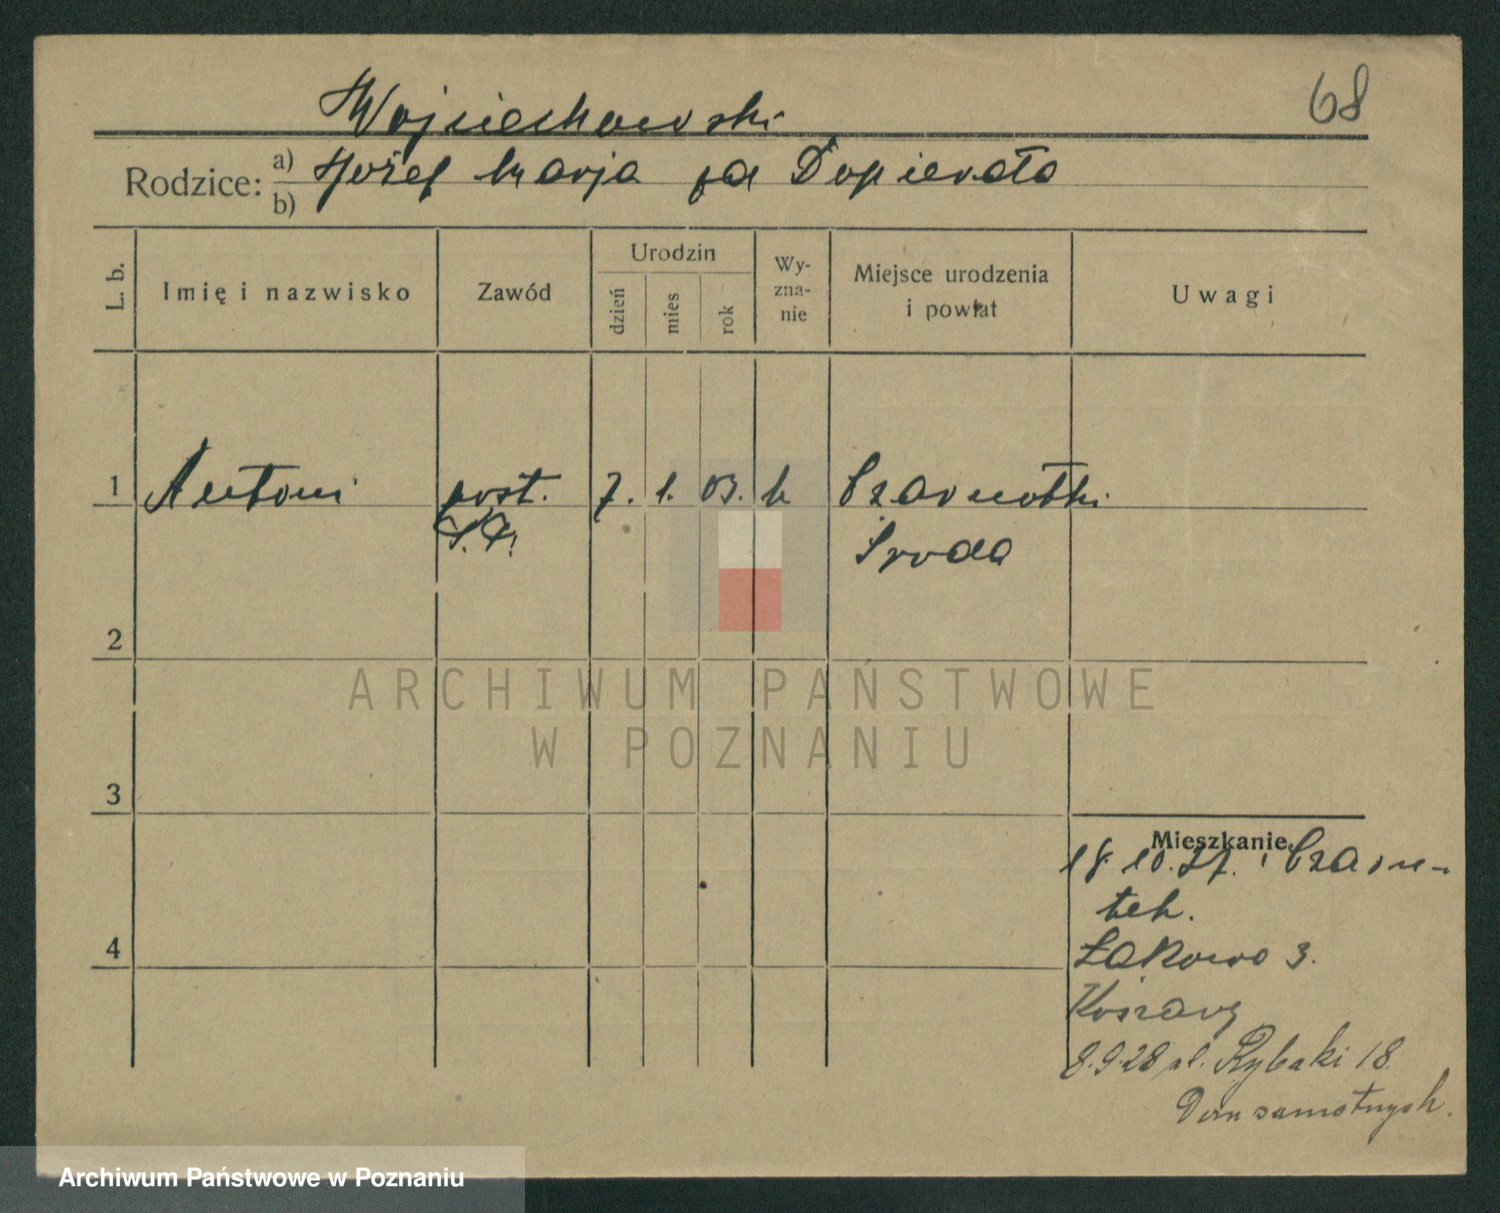 68
Wojciechowski
Rodzice: a) Józef Marja zd Dopierała
b)
L. b. Imię i nazwisko Zawód Urodzin dzień mies rok Wy-zna-nie Miejsce urodzenia i powiat Uwagi
1 Antoni post. 7. 1. 03. k Czarnotki
P.P. Środa
2
3
4
Mieszkanie
18.10.27. Czarno-
tek.
Łąkowa 3.
Koszary
8.9.28 ul. Rybaki 18.
Dom samotnych.
ARCHIWUM PAŃSTWOWE
W POZNANIU
Archiwum Państwowe w Poznaniu